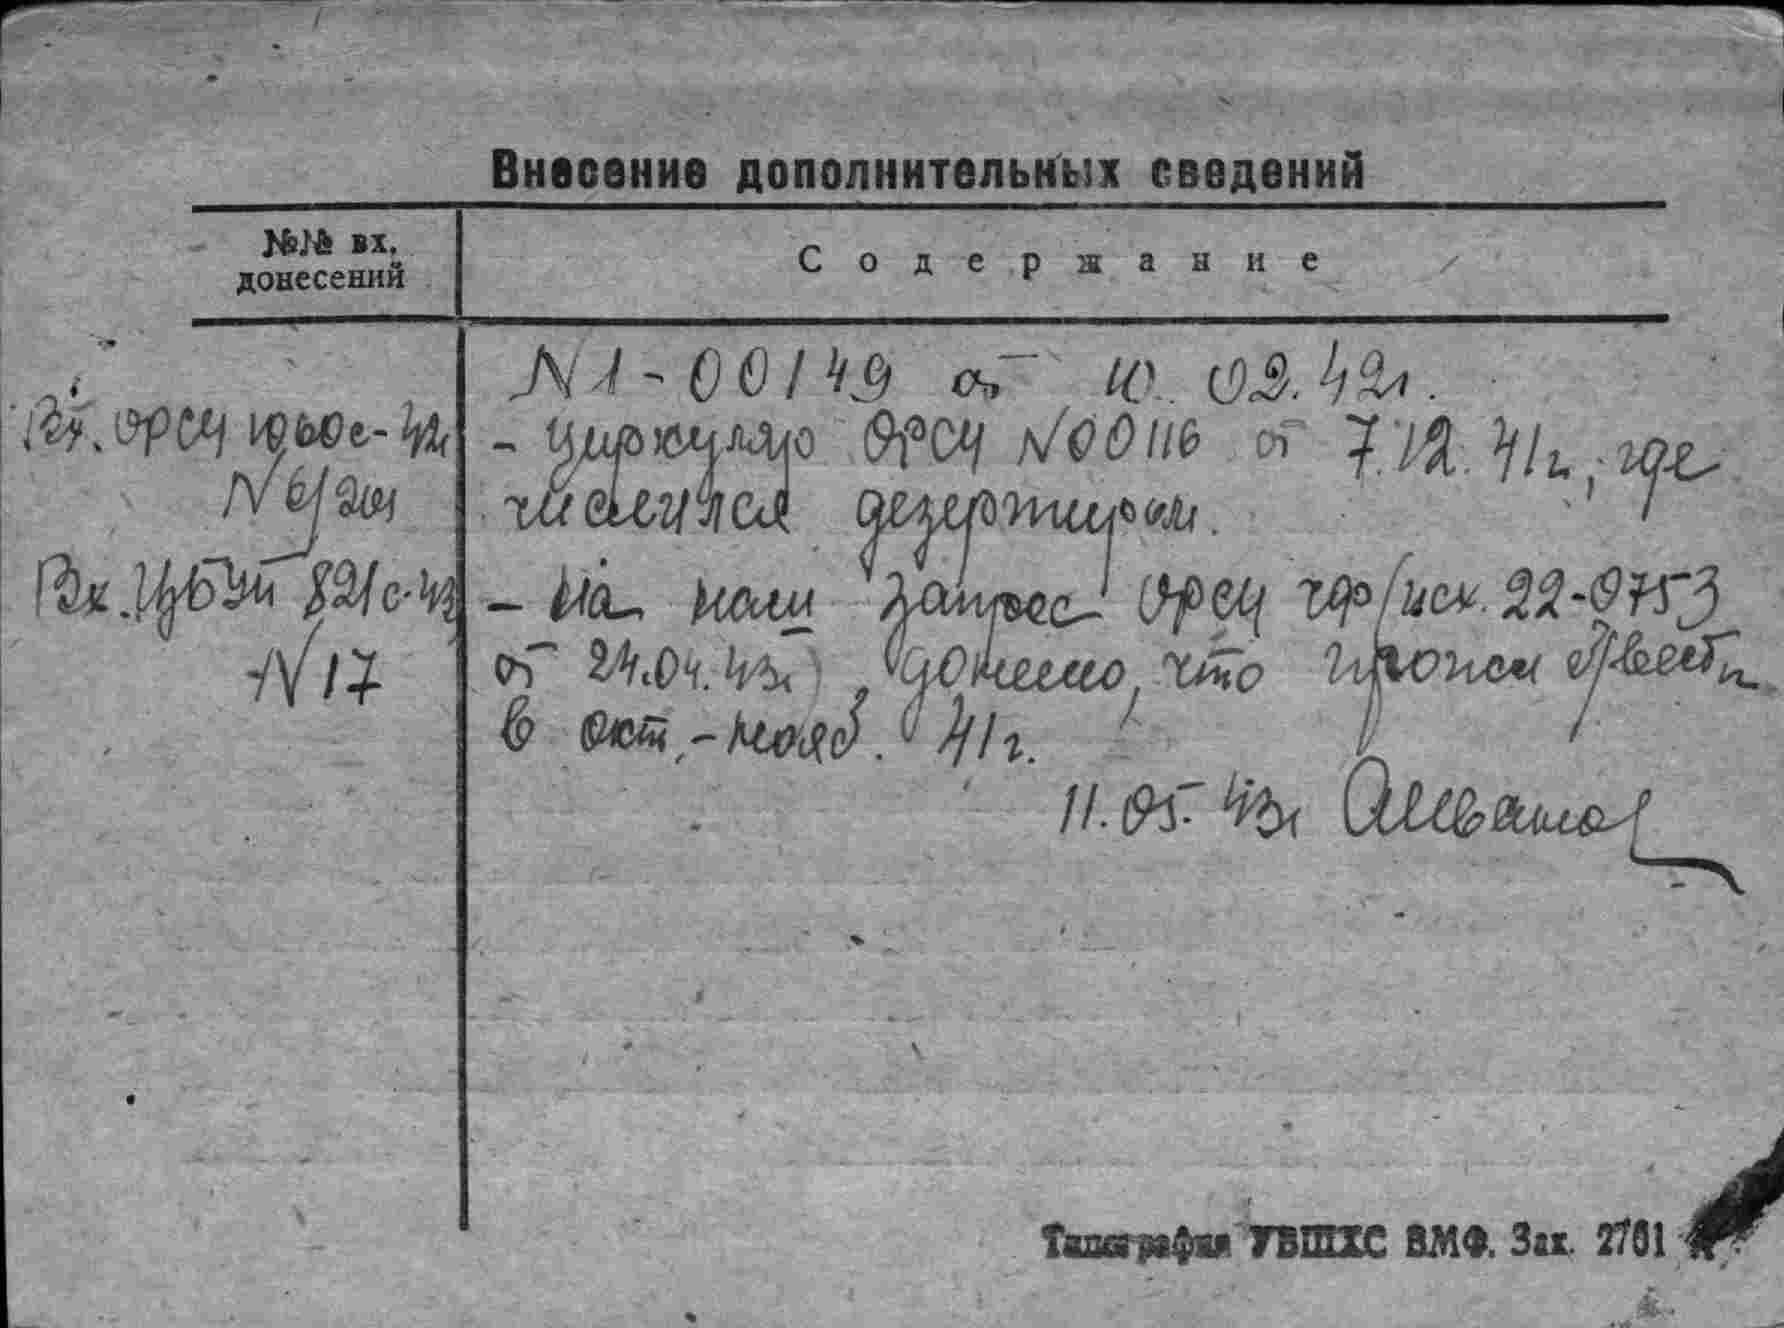 Внесение дополнительных сведений
№№ вх.
донесений
Содержание
N 1-00149 от 10.02.42г.
Вх. ОРСЧ 1060с-42г
- циркуляр ОРСЧ N00116 от 7.12.41г., где
N 6/
числился дезертиром.
Вх. 821с-43
- На наш запрос ОРСЧ ЧФ/исх. 22-0753
N 17
от 24.04.43г) донесено, что пропал без вести
в окт.-нояб. 41г.
11.05.43г
Типография УВШХС ВМФ. Зак. 2761